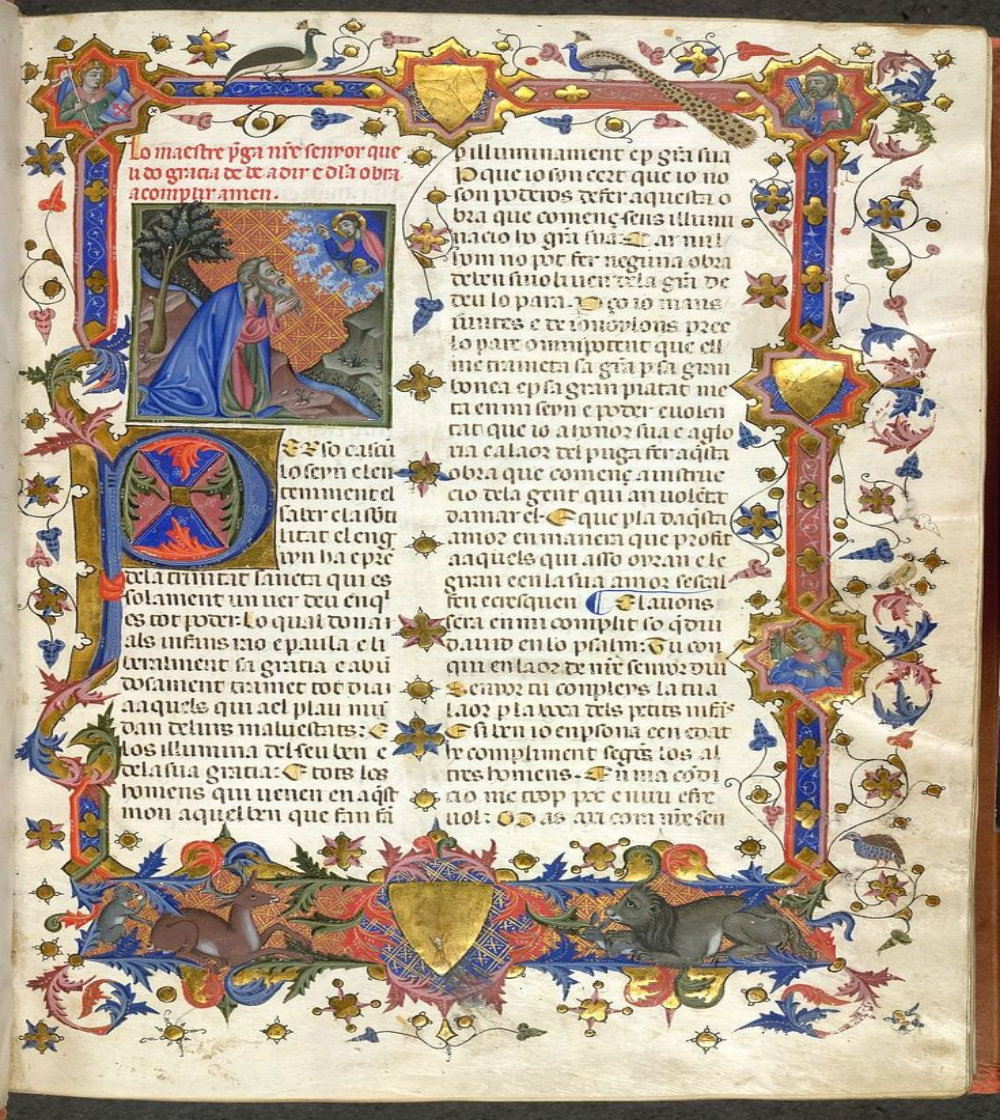 Lo maestre p̄ga nr̄e senyor que
li do gracia de be a dir e d̄la obra
acomplir amen.
PER so car si
lo seyn e l en
teniment el
saber e la sobti
litat el eng
inyn ha e pre
dela trinitat sancta qui es
solament un ver deu en q̄l
es tot poder: Lo qual dona i
als infans rao e paula e li
beralment sa gracia e abū
dosament tramet tot diai
a aquels qui ael plau mū
dan de lurs maluestats: E
los illumina del seu ben e
dela sua gracia: E tots los
homens qui uenen en aq̄st
mon aquel ben que fan fā
p illuminament ep gr̄a sua
P que io son cert que io no
son poderos defer aquesta o
bra que començ sens illumi
nacio lo gr̄a sua: Car nul
hom no pot fer neguna obra
de deu lo para. P ço io mans
iuntes e de ionoylons prec
lo pare omnipotent que ell
me trameta sa gr̄a p sa gran
bonea ep sa gran piatat me
ta en mi seyn e poder e uolen
tat que io a honor sua e aglo
ria e a laor del puga fer aq̄sta
obra que començ a instruc
cio dela gent qui an uolētat
damar el. E que p la daq̄sta
amor en manera que profit
a aquels qui asso oyran e le
giran e en la sua amor sescal
fen e cresquen E lauors
sera en mi complit so q̄ diu
dauid en lo psalm: Tu con
qui en laor de nr̄e senyor diu
Senyor tu conpleys la tua
laor p la boca dels petits infās
E si ben io en psona e en edat
he compliment segōs los al
tres homens. En ma cōdi
cio me trop poc e nuu esfre
uol: Mas ara cora nr̄e sen